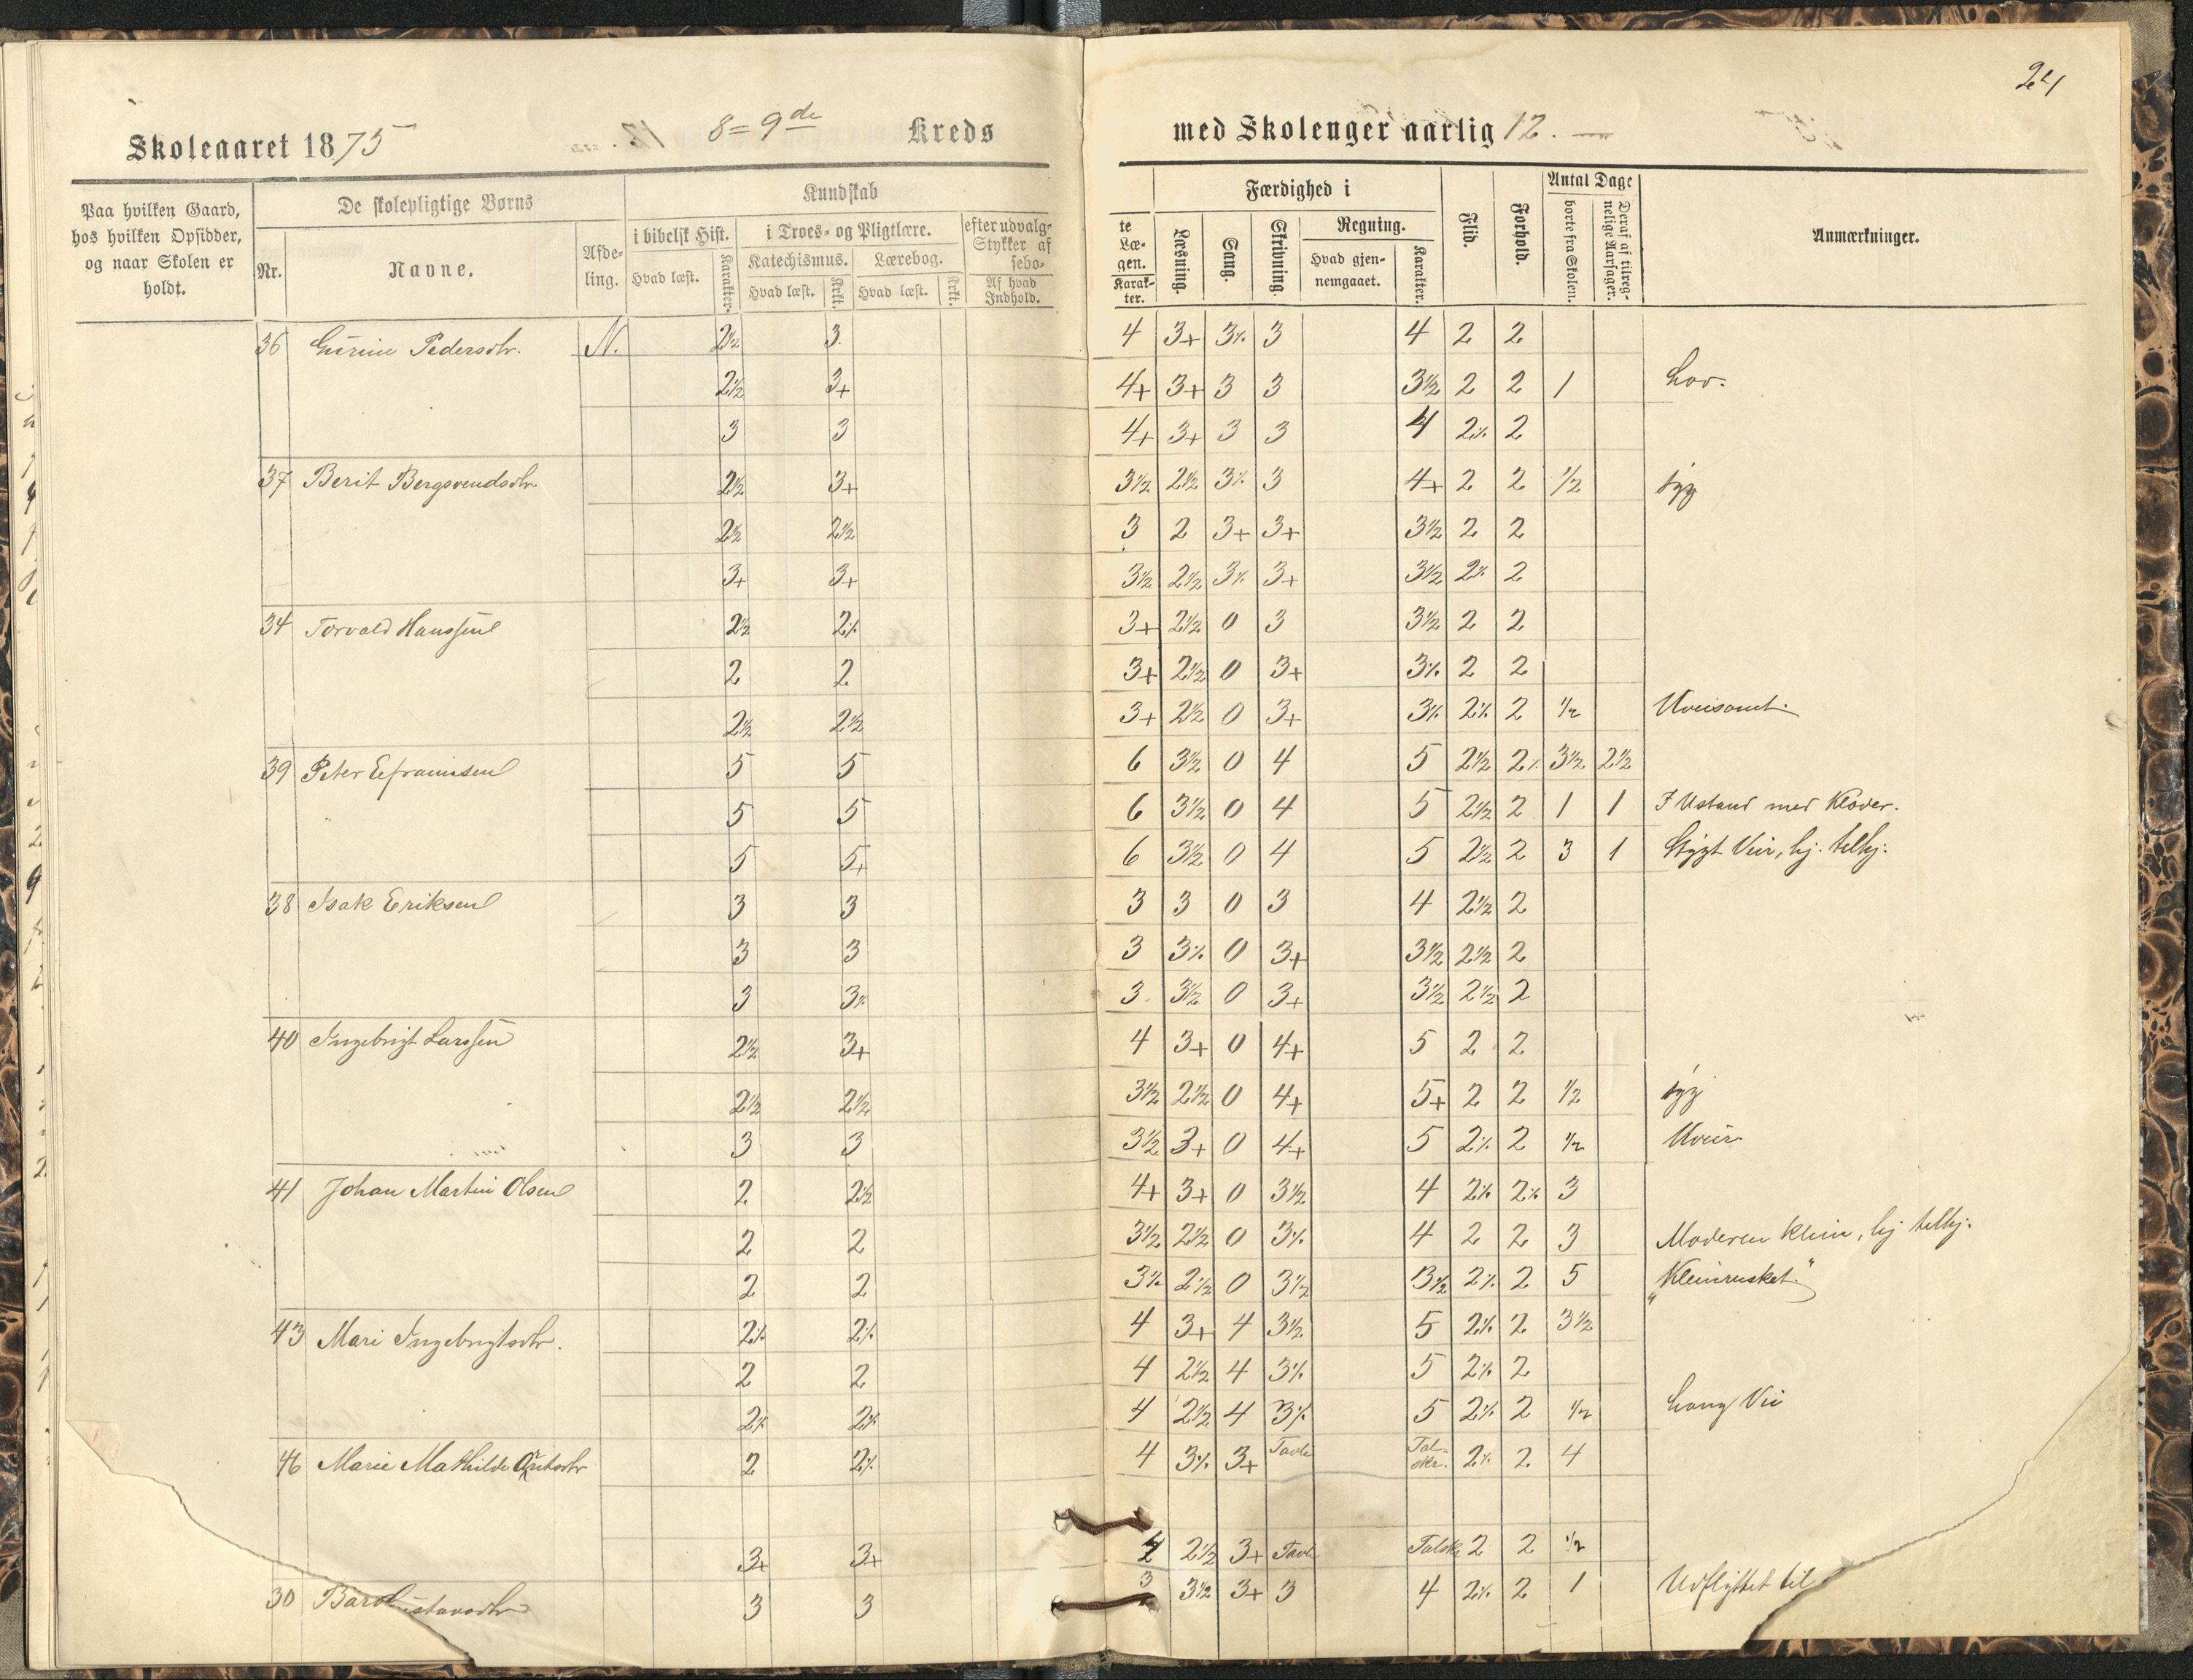 24
Skoleaaret 1875 8=9de Kreds med Skolenger aarlig 12.
Paa hvilken Gaard, hos hvilken Opsidder, og naar Skolen er holdt.
De skolepligtige Børns
Nr. Navne. Afdeling.
Kundskab
i bibelsk Hist. i Troes- og Pligtlære. efter udvalg-te Læ-
Stykker af sebo-gen.
Hvad læst. Karakter. Katechismus. Lærebog.
Hvad læst. Krkt. Hvad læst. Krkt. Af hvad Indhold. Karakter.
Færdighed i
Læsning. Sang. Skrivning. Regning.
Hvad gjennemgaaet. Karakter.
Flid. Forhold.
Antal Dage
borte fra Skolen. Deraf af tilregnelige Aarsager.
Anmærkninger.
36 Gurine Pedersdtr. N. 2½ 3. 4 3+ 3⁒ 3 4 2 2
2½ 3+ 4+ 3+ 3 3 3½ 2 2 1 Lov.
3 3 4+ 3+ 3 3 4 2⁒ 2
37 Berit Bergsvendsdtr 2½ 3+ 3½ 2½ 3⁒ 3 4+ 2 2 ½ syg
2½ 2½ 3 2 3+ 3+ 3½ 2 2
3+ 3+ 3½ 2½ 3⁒ 3+ 3½ 2⁒ 2
34 Torvald Hanssen 2½ 2⁒ 3+ 2½ 0 3 3½ 2 2
2 2 3+ 2½ 0 3+ 3⁒ 2 2
2½ 2½ 3+ 2½ 0 3+ 3⁒ 2⁒ 2 ½ Uveisomt.
39 Peter Eefraimsen 5 5 6 3½ 0 4 5 2½ 2⁒ 3½ 2½
5 5 6 3½ 0 4 5 2½ 2 1 1 I Ustand med Klæder.
5 5+ 6 3½ 0 4 5 2½ 2 3 1 Stygt Veir, hj. telhj.
38 Isak Eriksen 3 3 3 3 0 3 4 2½ 2
3 3 3 3⁒ 0 3+ 3½ 2½ 2
3 3⁒ 3 3½ 0 3+ 3½ 2½ 2
40 Ingebrigt Larssen 2½ 3+ 4 3+ 0 4+ 5 2 2
2½ 2½ 3½ 2½ 0 4+ 5+ 2 2 ½ syg
3 3 3½ 3+ 0 4+ 5 2⁒ 2 ½ Uveir
41 Johan Martin Olsen 2 2½ 4+ 3+ 0 3½ 4 2⁒ 2⁒ 3
2 2 3½ 2½ 0 3⁒ 4 2 2 3 Moderen klein, hj telhj.
2 2 3⁒ 2½ 0 3½ 3½ 2⁒ 2 5 "Kleinrusket."
43 Mari Ingebrigtsdtr. 2⁒ 2⁒ 4 3+ 4 3½ 5 2⁒ 2 3½
2 2 4 2½ 4 3⁒ 5 2⁒ 2
2⁒ 2⁒ 4 2½ 4 3⁒ 5 2⁒ 2 ½ Lang Vei
46 Marie Mathilde 2 2⁒ 4 3⁒ 3+ Tavle Talskr. 2⁒ 2 4
3+ 3+ 4 2½ 3+ Tavle Talskr 2 2 ½
30 3 3 3 3½ 3+ 3 4 2⁒ 2 1 Udflyttet til